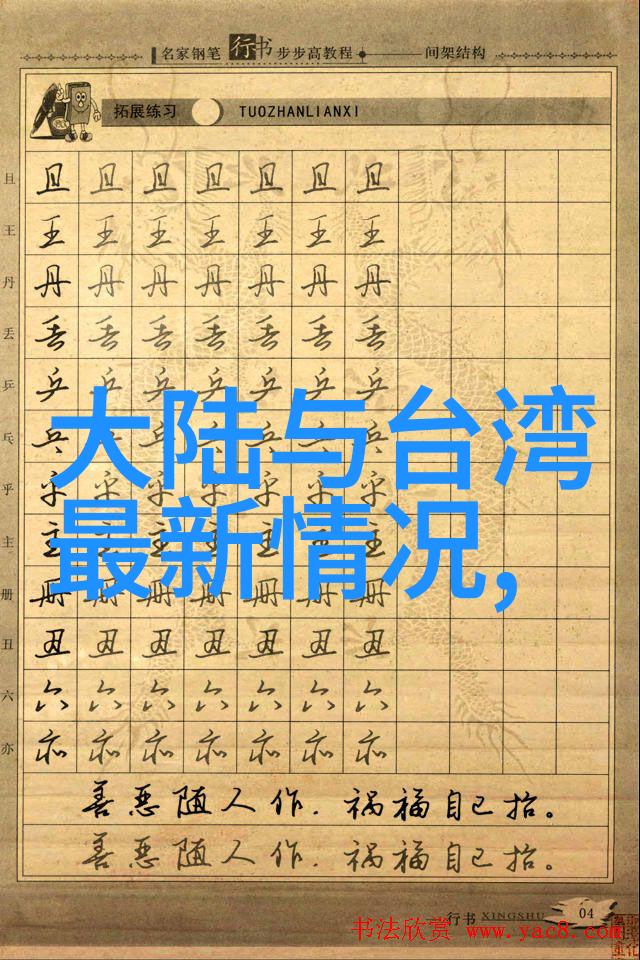 名家钢笔行书步步高教程——间架结构
拓展练习 TUOZHANLIANXI
且 且 且 且 且 且 且 且
王 王 王 王 王 王 王 王
丹 丹 丹 丹 丹 丹 丹 丹
丢 丢 丢 丢 丢 丢 丢 丢
乒 乒 乒 乒 乒 乒 乒 乒
大陆与台湾
乓 乓 乓 乓 乓 乓 乓 乓
乎 乎 乎 乎 乎 乎 乎 乎
最新情况,
主 主 主 主 主 主 主 主
册 册 册 册 册 册 册 册
丑 丑 丑 丑 丑 丑 丑 丑
六 六 六 六 六 六 六 六
亦 亦 亦 亦 亦 亦 亦 亦
善恶随人作.祸福自己招。
善恶随人作.祸福自己招。
行书 XINGSHU 04
书法欣赏 www.yac8.com